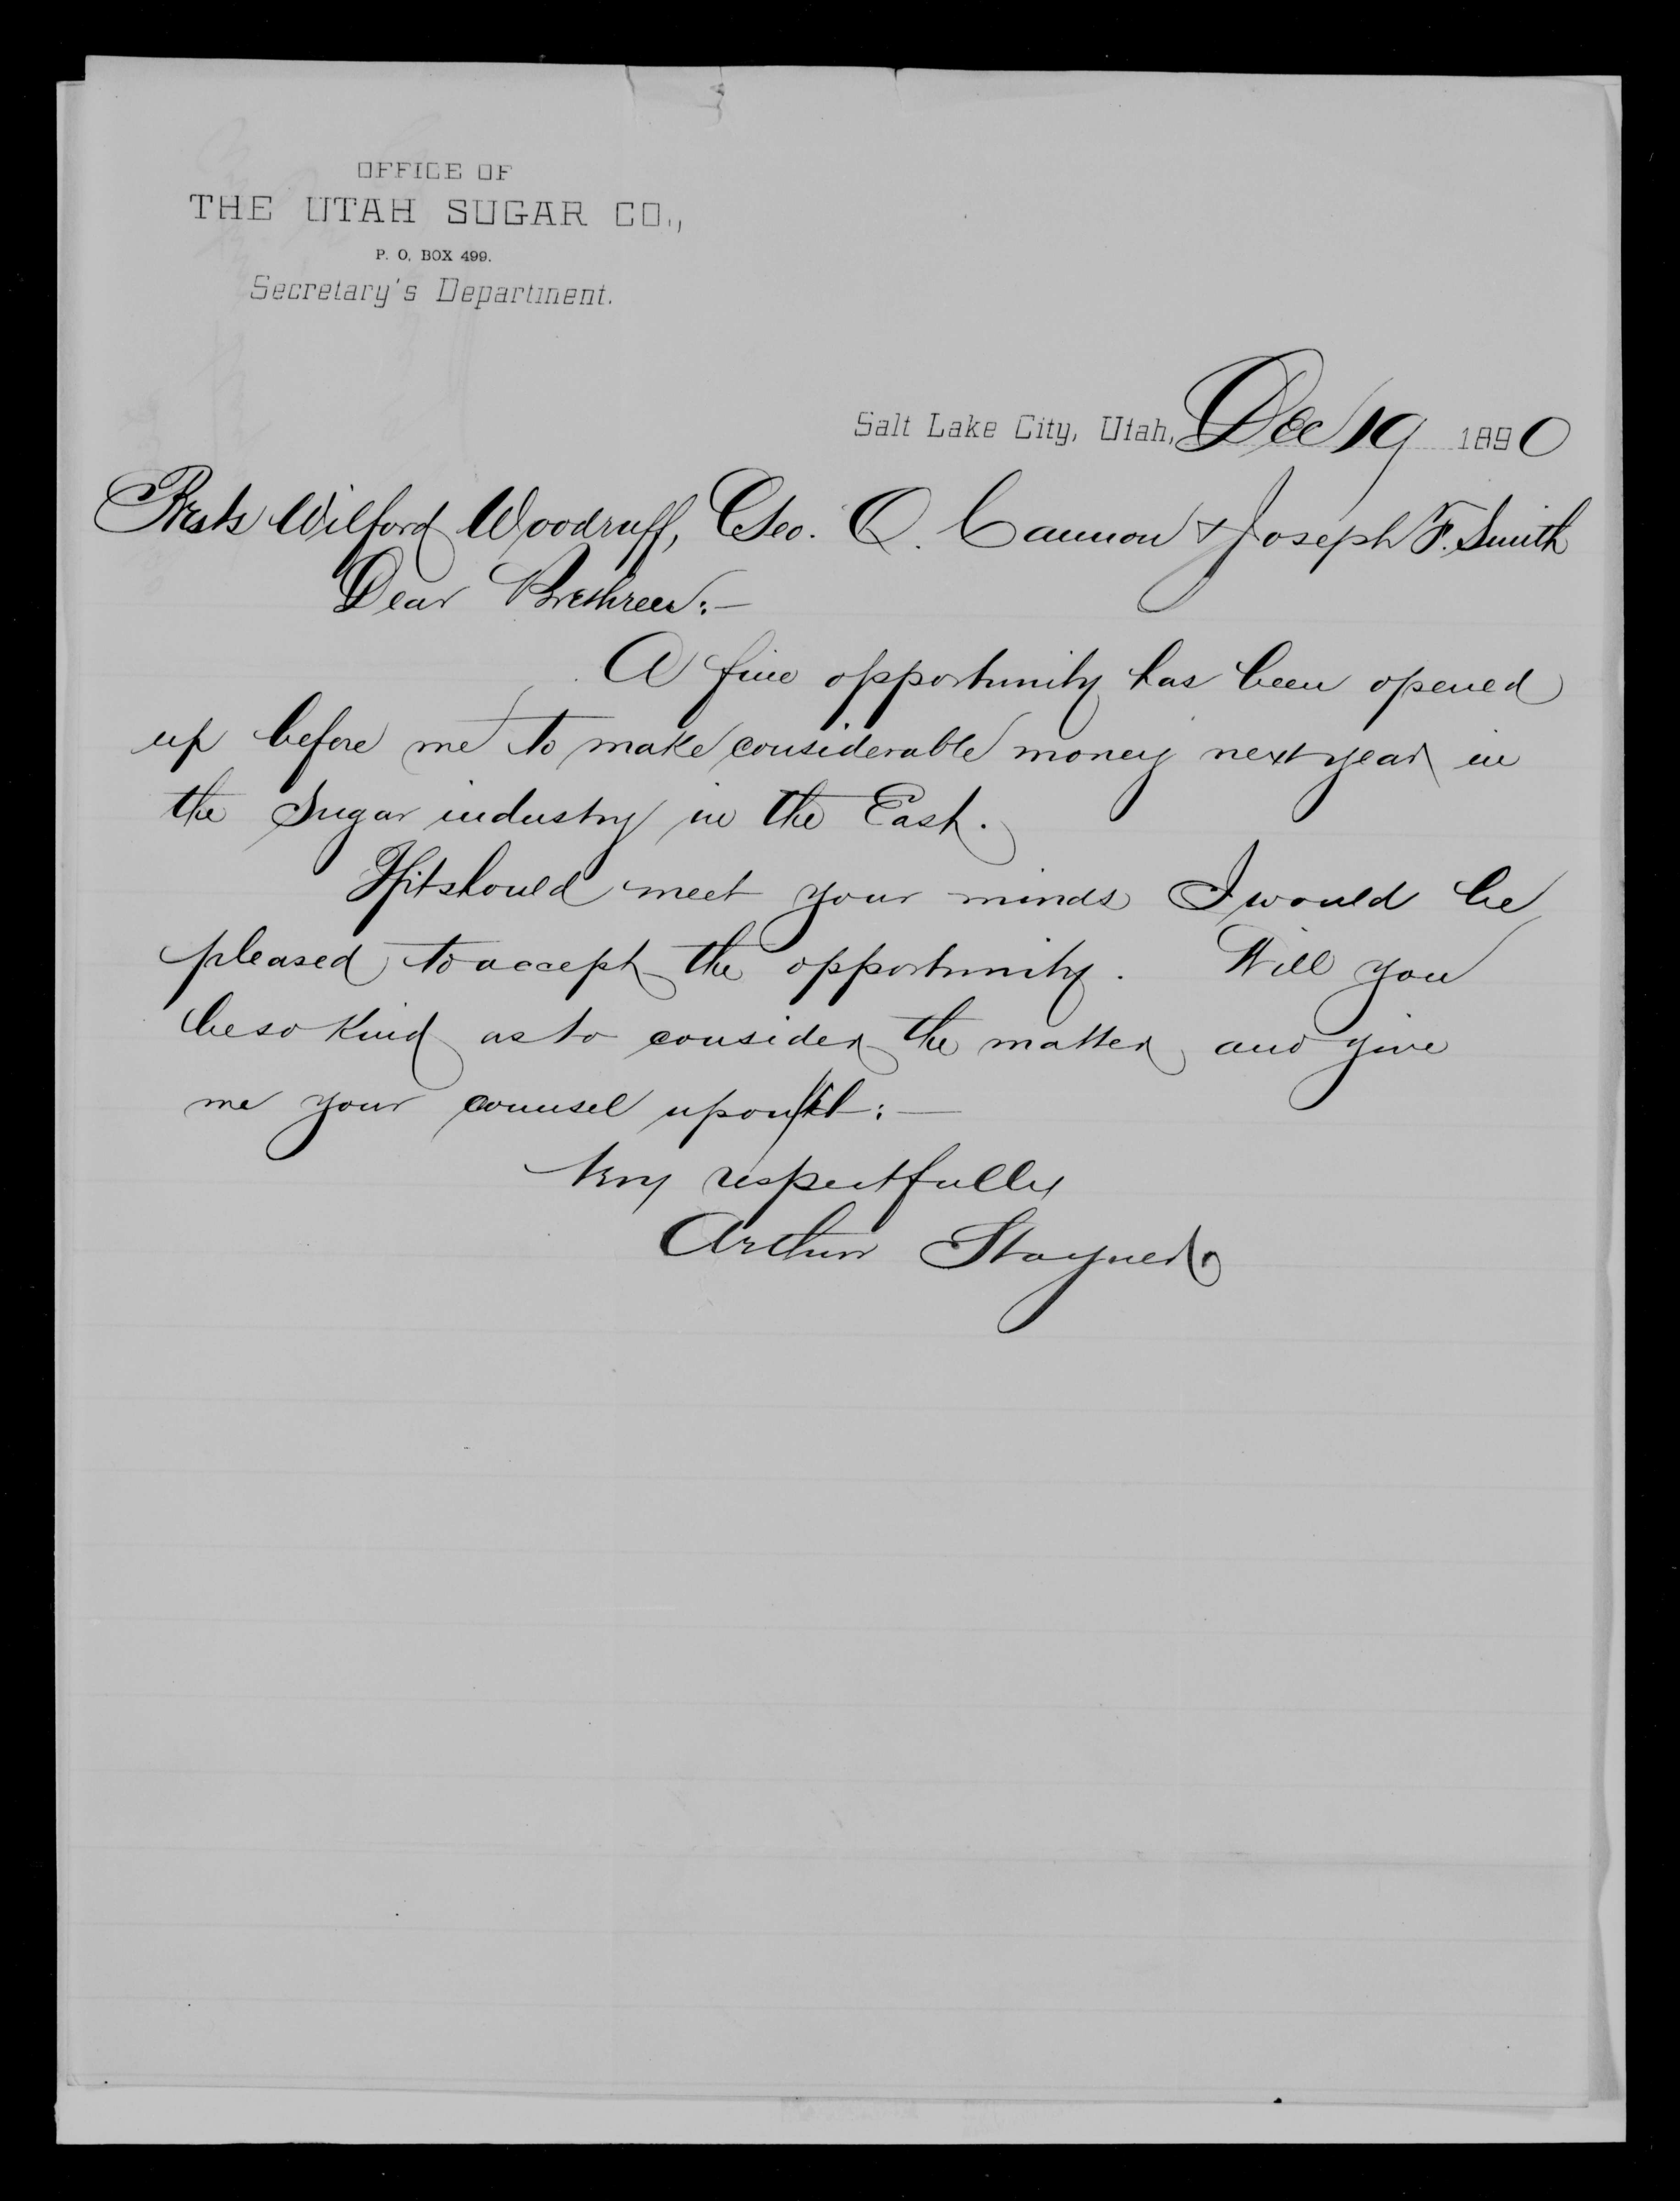 OFFICE OF
THE UTAH SUGAR CO.,
P. O. BOX 499.
Secretary's Department.
Salt Lake City, Utah, Dec 19 1890
Prests Wilford Woodruff, Geo. Q. Cannon & Joseph F. Smith
Dear Brethren:—
A fine opportunity has been opened
up before me to make considerable money next year in
the Sugar industry in the East.
If it should meet your minds I would be
pleased to accept the opportunity. Will you
be so kind as to consider the matter and give
me your counsel upon it:—
Very respectfully
Arthur Stayner